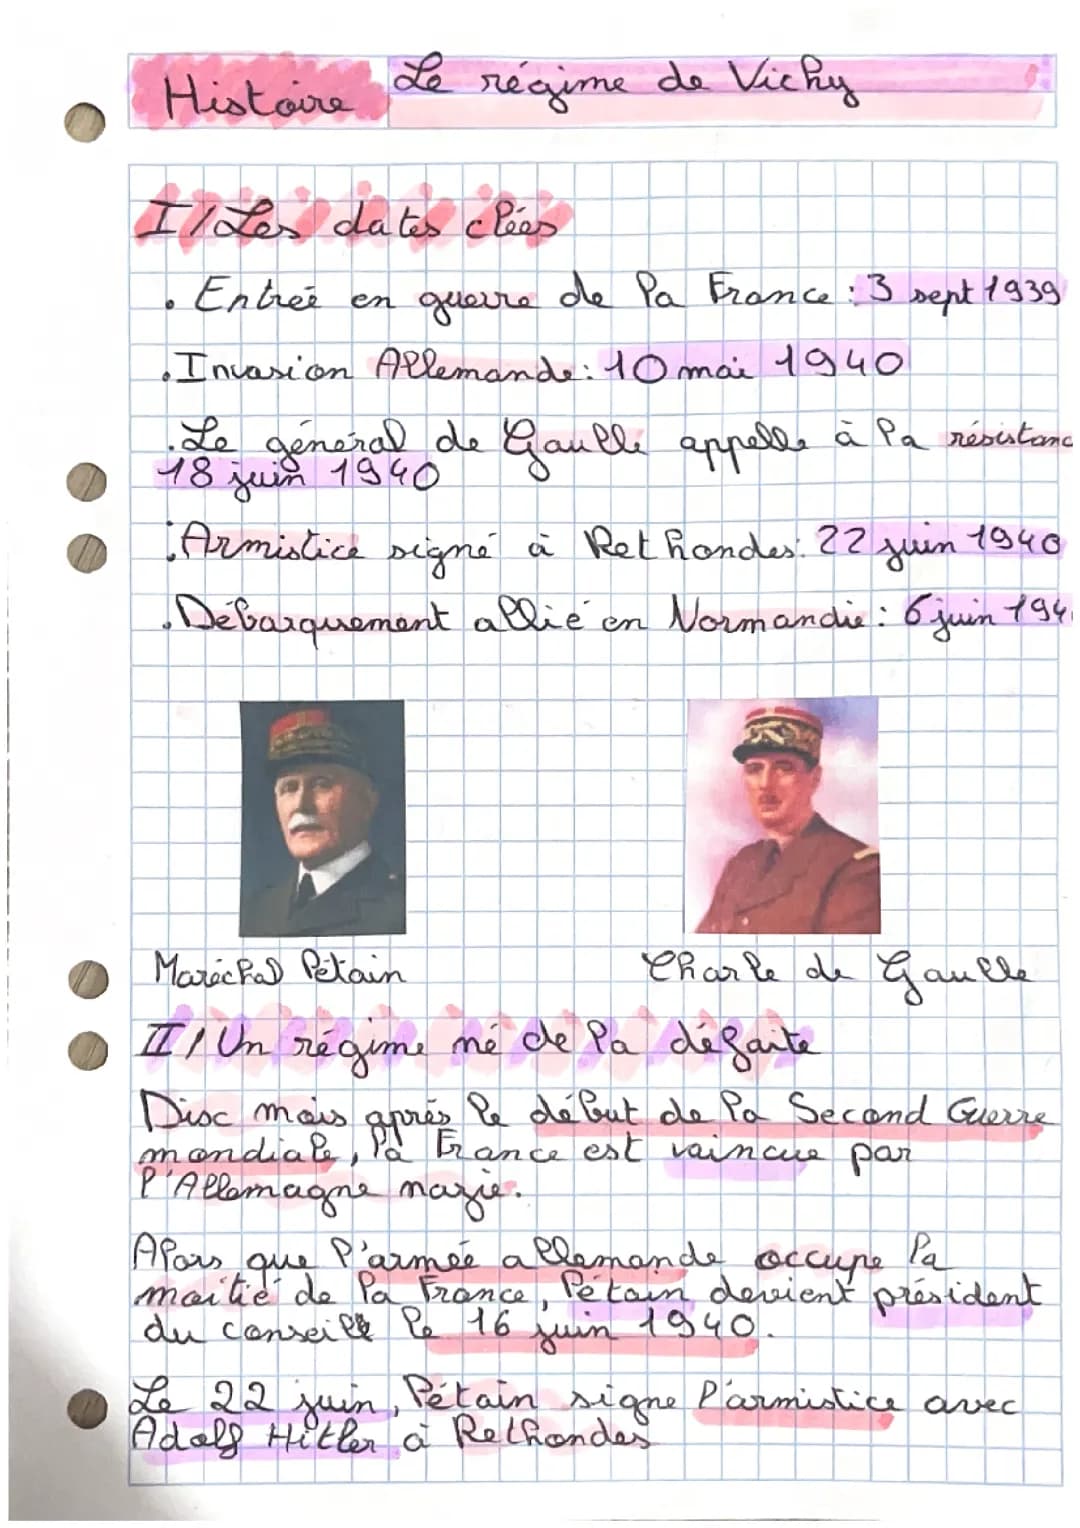 Histoire
Le régime de Vichy
I/ Les dates clées
. Entrée en guerre de la France : 3 sept 1939
. Invasion Allemande : 10 mai 1940
. Le général de Gaulle appelle à la résistanc
18 juin 1940
. Armistice signé à Rethondes : 22 juin 1940
. Débarquement allié en Normandie : 6 juin 194
Maréchal Pétain
Charle de Gaulle
II/ Un régime né de la défaite
Disc mois après le début de la Second Guerre
mondiale, la France est vaincue par
l'Allemagne nazie.
Alors que l'armée allemande occupe la
moitié de la France, Pétain devient président
du conseil le 16 juin 1940.
Le 22 juin, Pétain signe l'armistice avec
Adolf Hitler à Rethondes